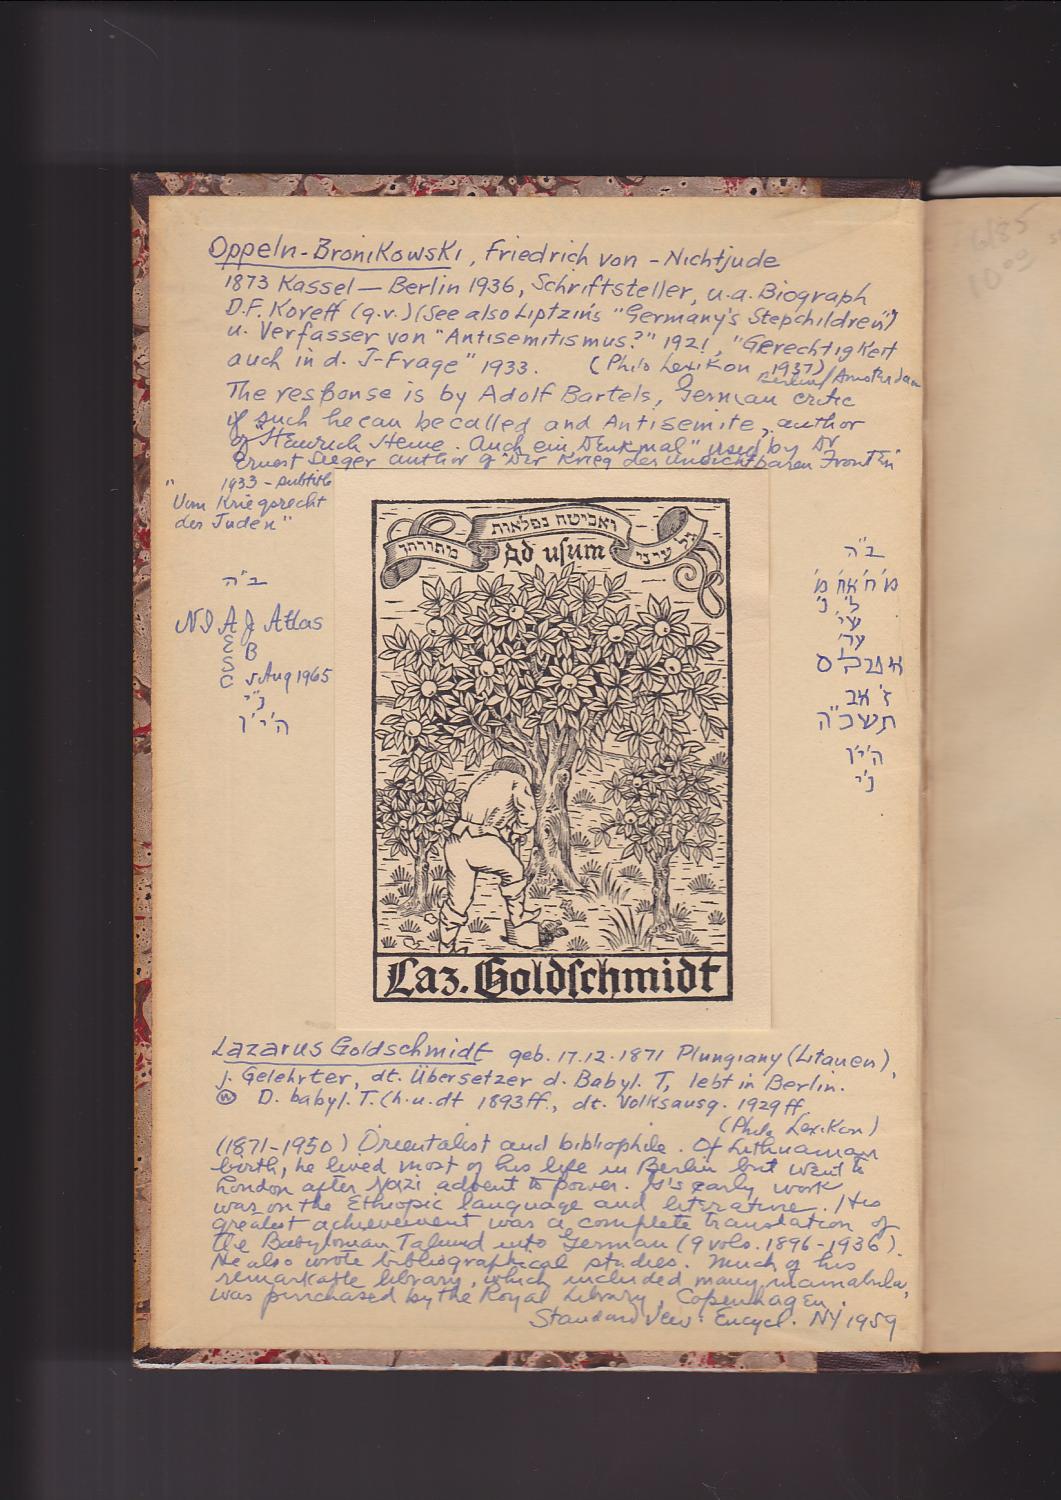 Oppeln-Bronikowski, Friedrich von - Nichtjude
1873 Kassel — Berlin 1936, Schriftsteller, u.a. Biograph
D.F. Koreff (q.v.) (See also Liptzin's "Germany's Stepchildren")
u. Verfasser von "Antisemitismus?" 1921, "Gerechtigkeit
auch in d. J-Frage" 1933. (Philo Lexikon 1937)
Berlin/Amsterdam
The response is by Adolf Bartels, German critic
if such he can be called and Antisemite, author
of "Heinrich Heine. Auch ein Denkmal" used by Dr
Ernst Seeger author of "Der Krieg der unsichtbaren Fronten"
1933 - subtitle
"Vom Kriegsrecht
der Juden"
גל עיני
ואביטה נפלאות
מתורתך
Ad usum
ב"ה
N I A J Atlas
E B
S
C 5 Aug 1965
נ"י
ה'י'ו
ב"ה
ל' נ'
ז' אב
תשכ"ה
ה'י'ו
נ'י
Laz. Goldschmidt
Lazarus Goldschmidt geb. 17.12.1871 Plungiany (Litauen),
j. Gelehrter, dt. Übersetzer d. Babyl. T, lebt in Berlin.
W D. babyl. T. (h.u.dt 1893ff., dt. Volksausg. 1929ff
(Philo Lexikon)
(1871-1950) Orientalist and bibliophile. Of Lithuanian
birth, he lived most of his life in Berlin but went to
London after Nazi advent to power. His early work
was on the Ethiopic language and literature. His
greatest achievement was a complete translation of
the Babylonian Talmud into German (9 vols. 1896-1936).
He also wrote bibliographical studies. Much of his
remarkable library, which included many incunabula,
was purchased by the Royal Library, Copenhagen.
Standard Jew. Encycl. NY 1959